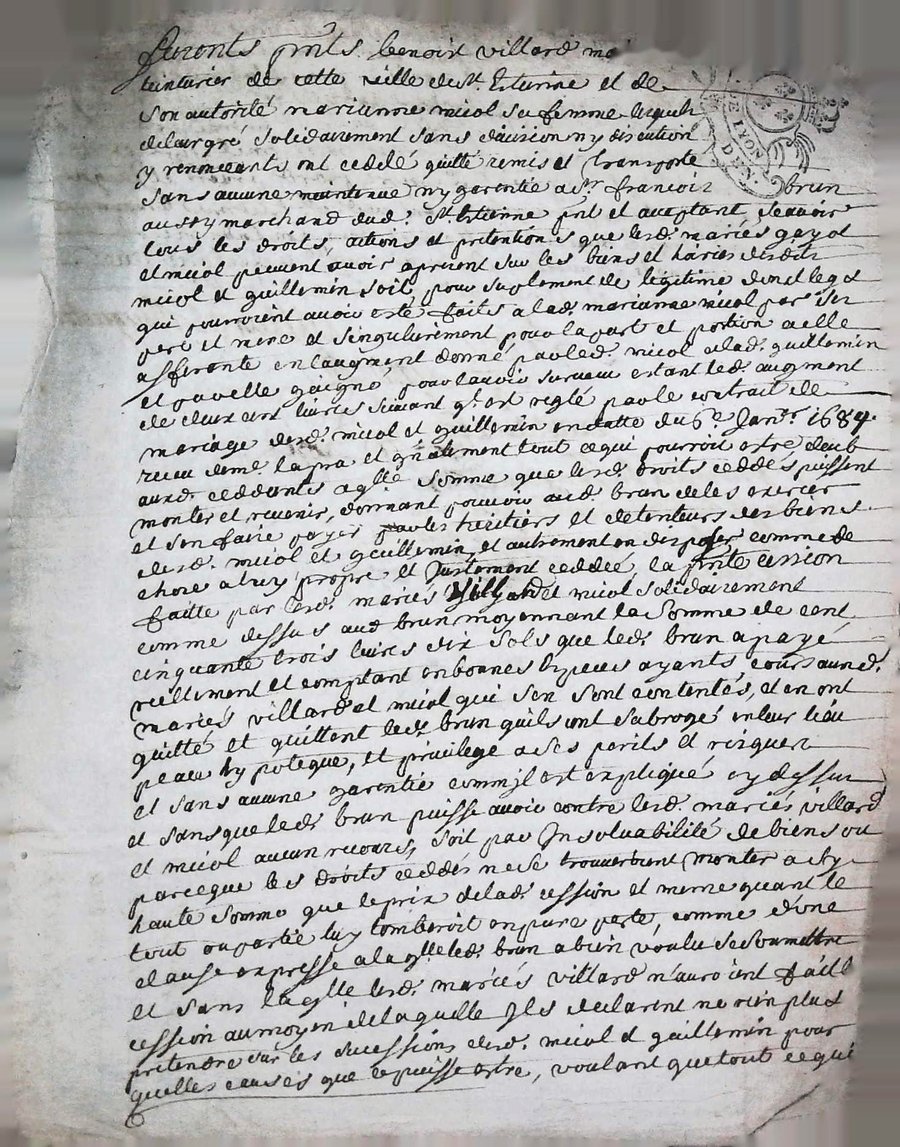 furents pnts. benoist villard me
teinturier de cette ville de st. Estienne et de
son autorité marianne miol sa femme lesquels
de leur gré solidairement sans division ny discution
y renonceants ont ceddé quitté remis et transporté
sans aucune maintenue ny garentie a sr. francois brun
aussy marchand dud. st. Estienne pnt et aceptant, scavoir
tous les droits, actions et pretentions que lesd. mariés gayot
et miol peuvent avoir apresent sur les biens et hoiries desdits
miol et guillemin soit pour suplement de legitime dond legat
qui pourroient avoir esté faits a lad. marianne miol par ses
pere et mere et singulierement pour la part et portion a elle
afferante en l'augment donné par led. miol a lad. guillemin
et par elle gaigné pour l'avoir survecu estant led. augment
de deux cent livres suivant qt. est reglé par le contrait de
mariage desd. miol et guillemin en datte du 6e. Janvr. 1684.
receu deme. lapra et gnallement tout ce qui pourroit estre deub
auxd. ceddants a qlle. somme que lesd. droits ceddés puissent
monter et revenir, donnant pouvoir aud. brun de les exercer
et s'en faire payer par les heritiers et detenteurs des biens
desd. miol et guillemin, et autrement en disposer comme de
chose a luy propre et Justement ceddée, la pnte cession
faitte par lesd. mariés villard et miol solidairement
comme dessus aud. brun moyennant la somme de cent
cinquante trois livres dix sols que led. brun a payé
reellement et comptant en bonnes especes ayants cours auxd.
mariés villard et miol qui s'en sont contentés, et en ont
quitté et quittent led. brun qu'ils ont subrogé en leur lieu
place hypoteque, et privilege a ses perils et risques
et sans aucune garentie comm'il est expliqué cy dessus
et sans que led. brun puisse avoir contre lesd. mariés villard
et miol aucun recours, soit par Insolvabilité de biens ou
parceque les droits ceddés ne se trouveroient monter a sy
haute somme que le prix de lad. cession et meme quant le
tout ou partie luy tomberoit en pure perte, comme d'une
clause expresse a laqlle. led. brun a bien voulu se soumettre
et sans laqlle lesd. mariés villard n'auroient faitt
cession au moyen de laquelle Ils declarent ne rien plus
pretendre sur les sucessions desd. miol et guillemin pour
quelles causes que ce puisse estre, voulant que tout ce qui
LYON
DEN.